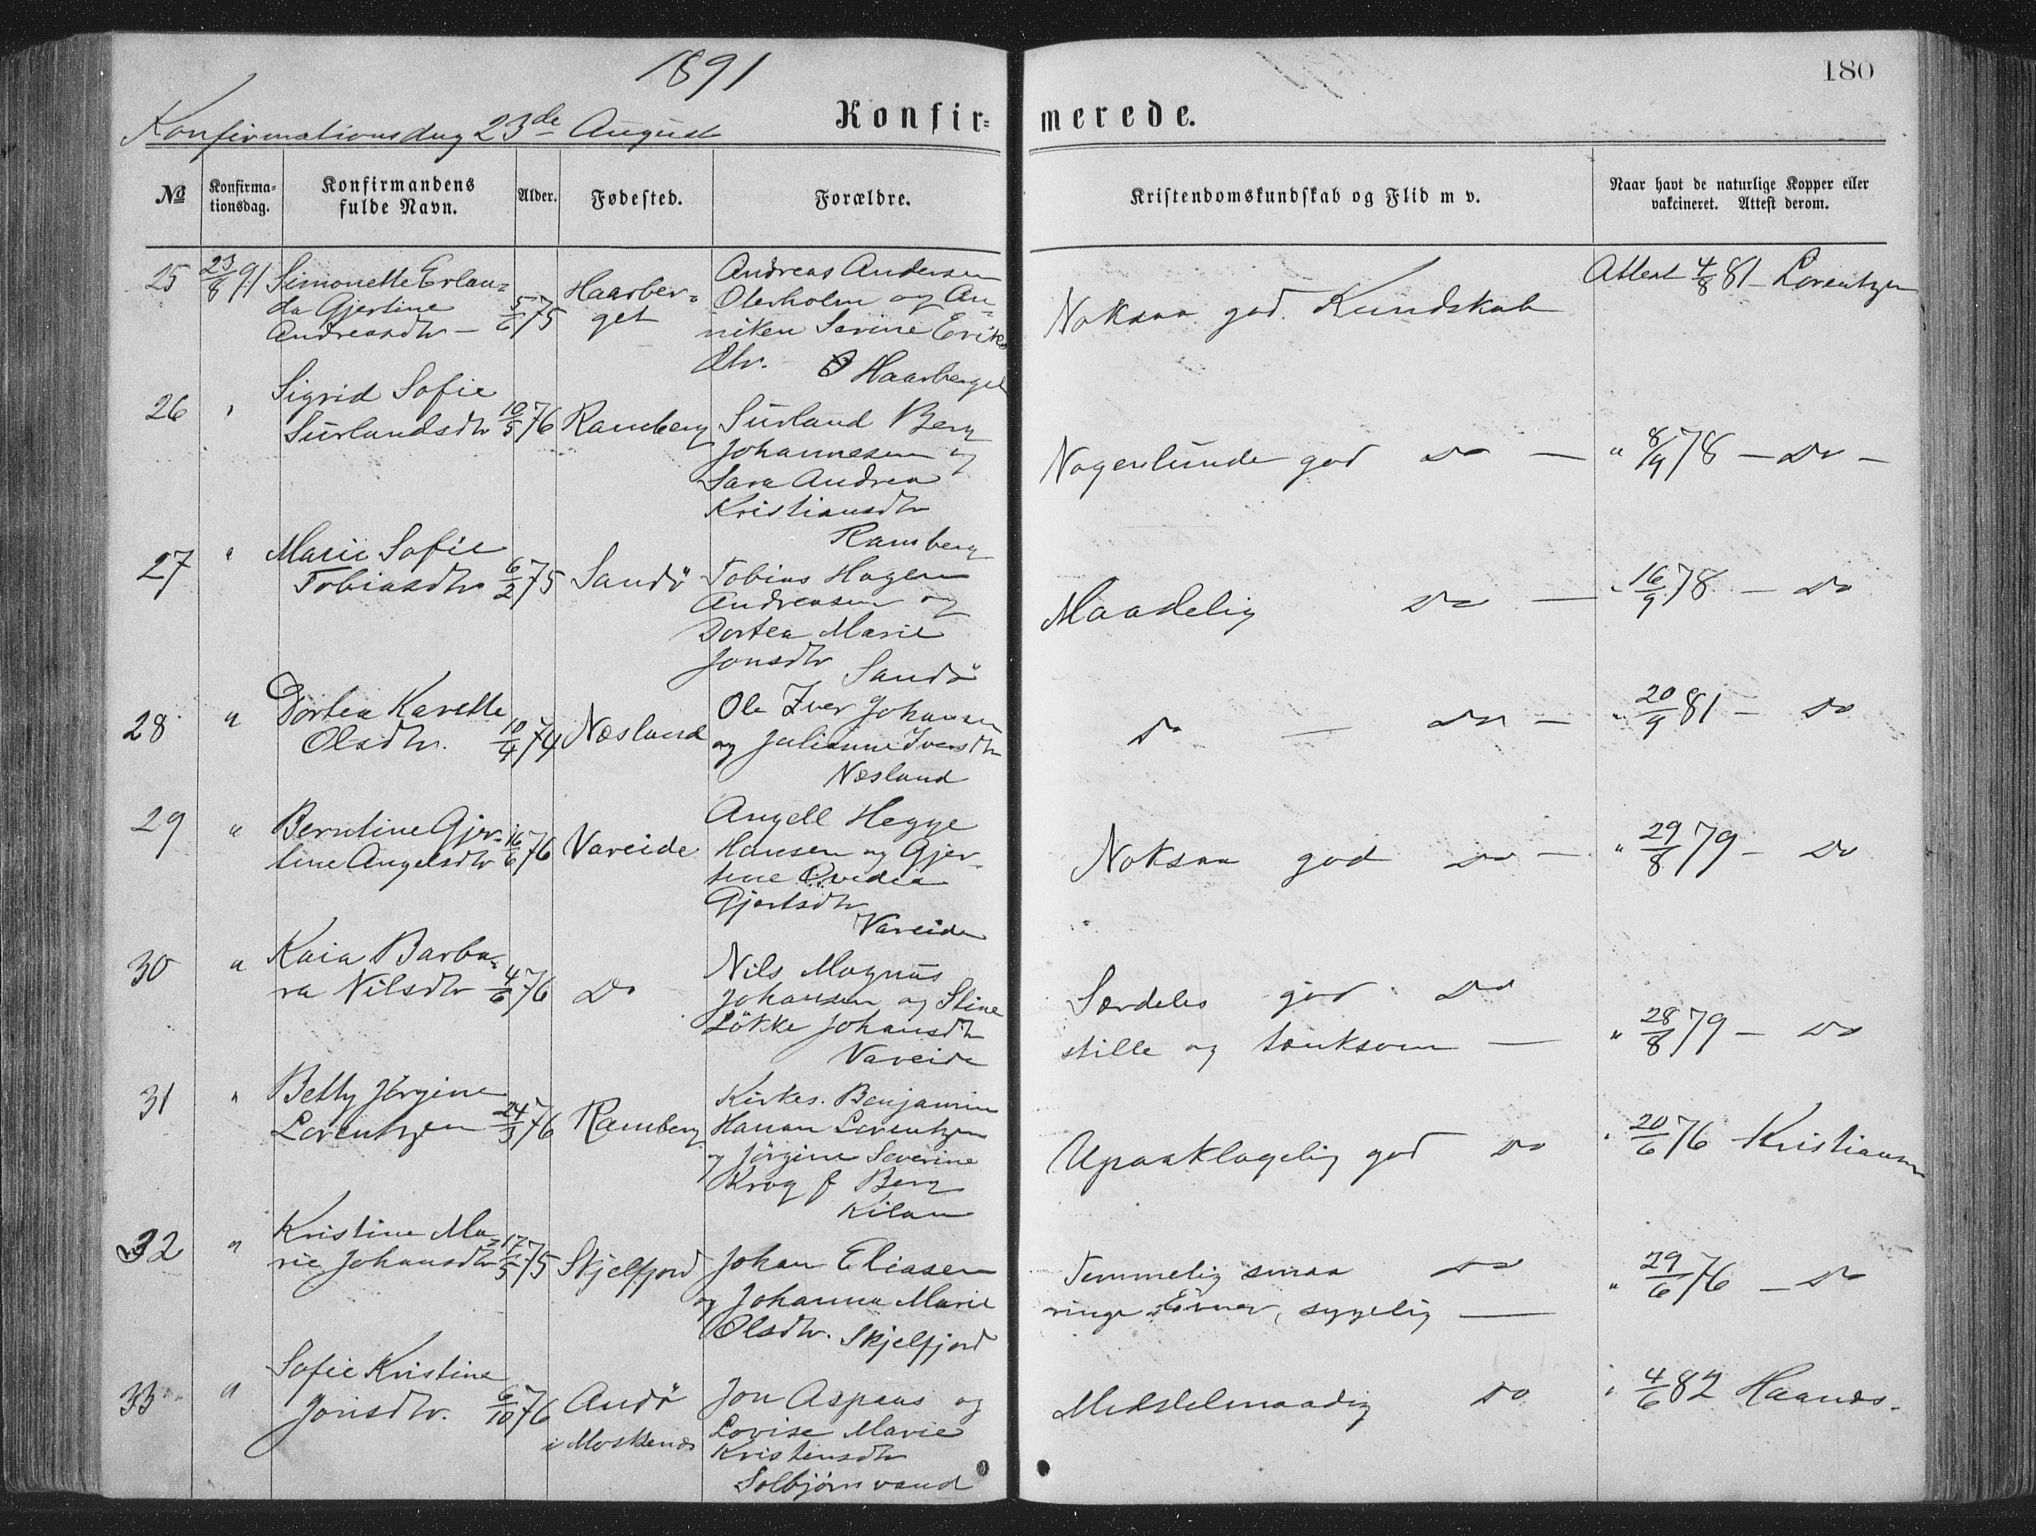 1891
180
Konfirmationsdag 23de August
Konfir=
merede.
No
Konfirma=
tionsdag.
Konfirmandens
fulde Navn.
Alder.
Fødested.
Forældre.
Kristendomskundskab og Flid m v.
Naar havt de naturlige Kopper eller
vakcineret. Attest derom.
25 23/8 91 Simonette Erlan=
da Gjertine
Andreasdtr —
5/6 75
Haarber=
get
Andreas Andersen
Oterholm og An=
niken Serine Eriks
dtr.
Haarberget
Noksaa god Kundskab
Attest 4/8 81 — Lorentzen
26 " Sigrid Sofie
Surlandsdtr 10/5 76 Ramberg
Surland Berg
Johannesen og
Sara Andrea
Kristiansdtr
Ramberg
Nogenlunde god Do —
" 8/9 78 — Do —
27 " Marie Sofie
Tobiasdtr 6/2 75 Sandö
Tobias Hagen
Andreasen og
Dortea Marie
Jonsdtr
Sandö
Maadelig Do —
" 16/9 78 — Do
28 " Dortea Karette
Olsdtr. 10/4 74 Næsland
Ole Iver Johansen
og Julianne Iversdtr
Næsland
Do — Do —
" 20/9 81 — Do
29 " Berntine Gjer=
tine Angelsdtr 16/6 76 Vareide
Angell Hegge
Hansen og Gjer=
tine Ovedia
Gjertsdtr
Vareide
Noksaa god Do —
" 29/8 79 — Do
30 " Kaia Barba=
ra Nilsdtr 4/6 76 Do
Nils Magnus
Johansen og Stine
Lökke Johansdtr
Vareide
Særdeles god Do
stille og tænksom —
" 28/8 79 — Do
31 " Betty Jörgine
Lorentzen 24/3 76 Ramberg
Kirkes. Benjamin
Hanan Lorentzen
og Jörgine Severine
Krog f Berg
Kilan
Upaaklagelig god Do
" 20/6 76 Kristiansen
32 " Kristine Ma=
rie Johansdtr 17/5 75 Skjelfjord
Johan Eliasen
og Johanna Marie
Olsdtr. Skjelfjord
Temmelig smaa Do
ringe Evner, sygelig —
" 29/6 76 — Do
33 " Sofie Kristine
Jonsdtr. 6/10 76 Andö
i Moskenæs
Jon Aspaas og
Lovise Marie
Kristensdtr
Solbjörnvand
Middelmaadig Do
" 4/6 82 Haands.